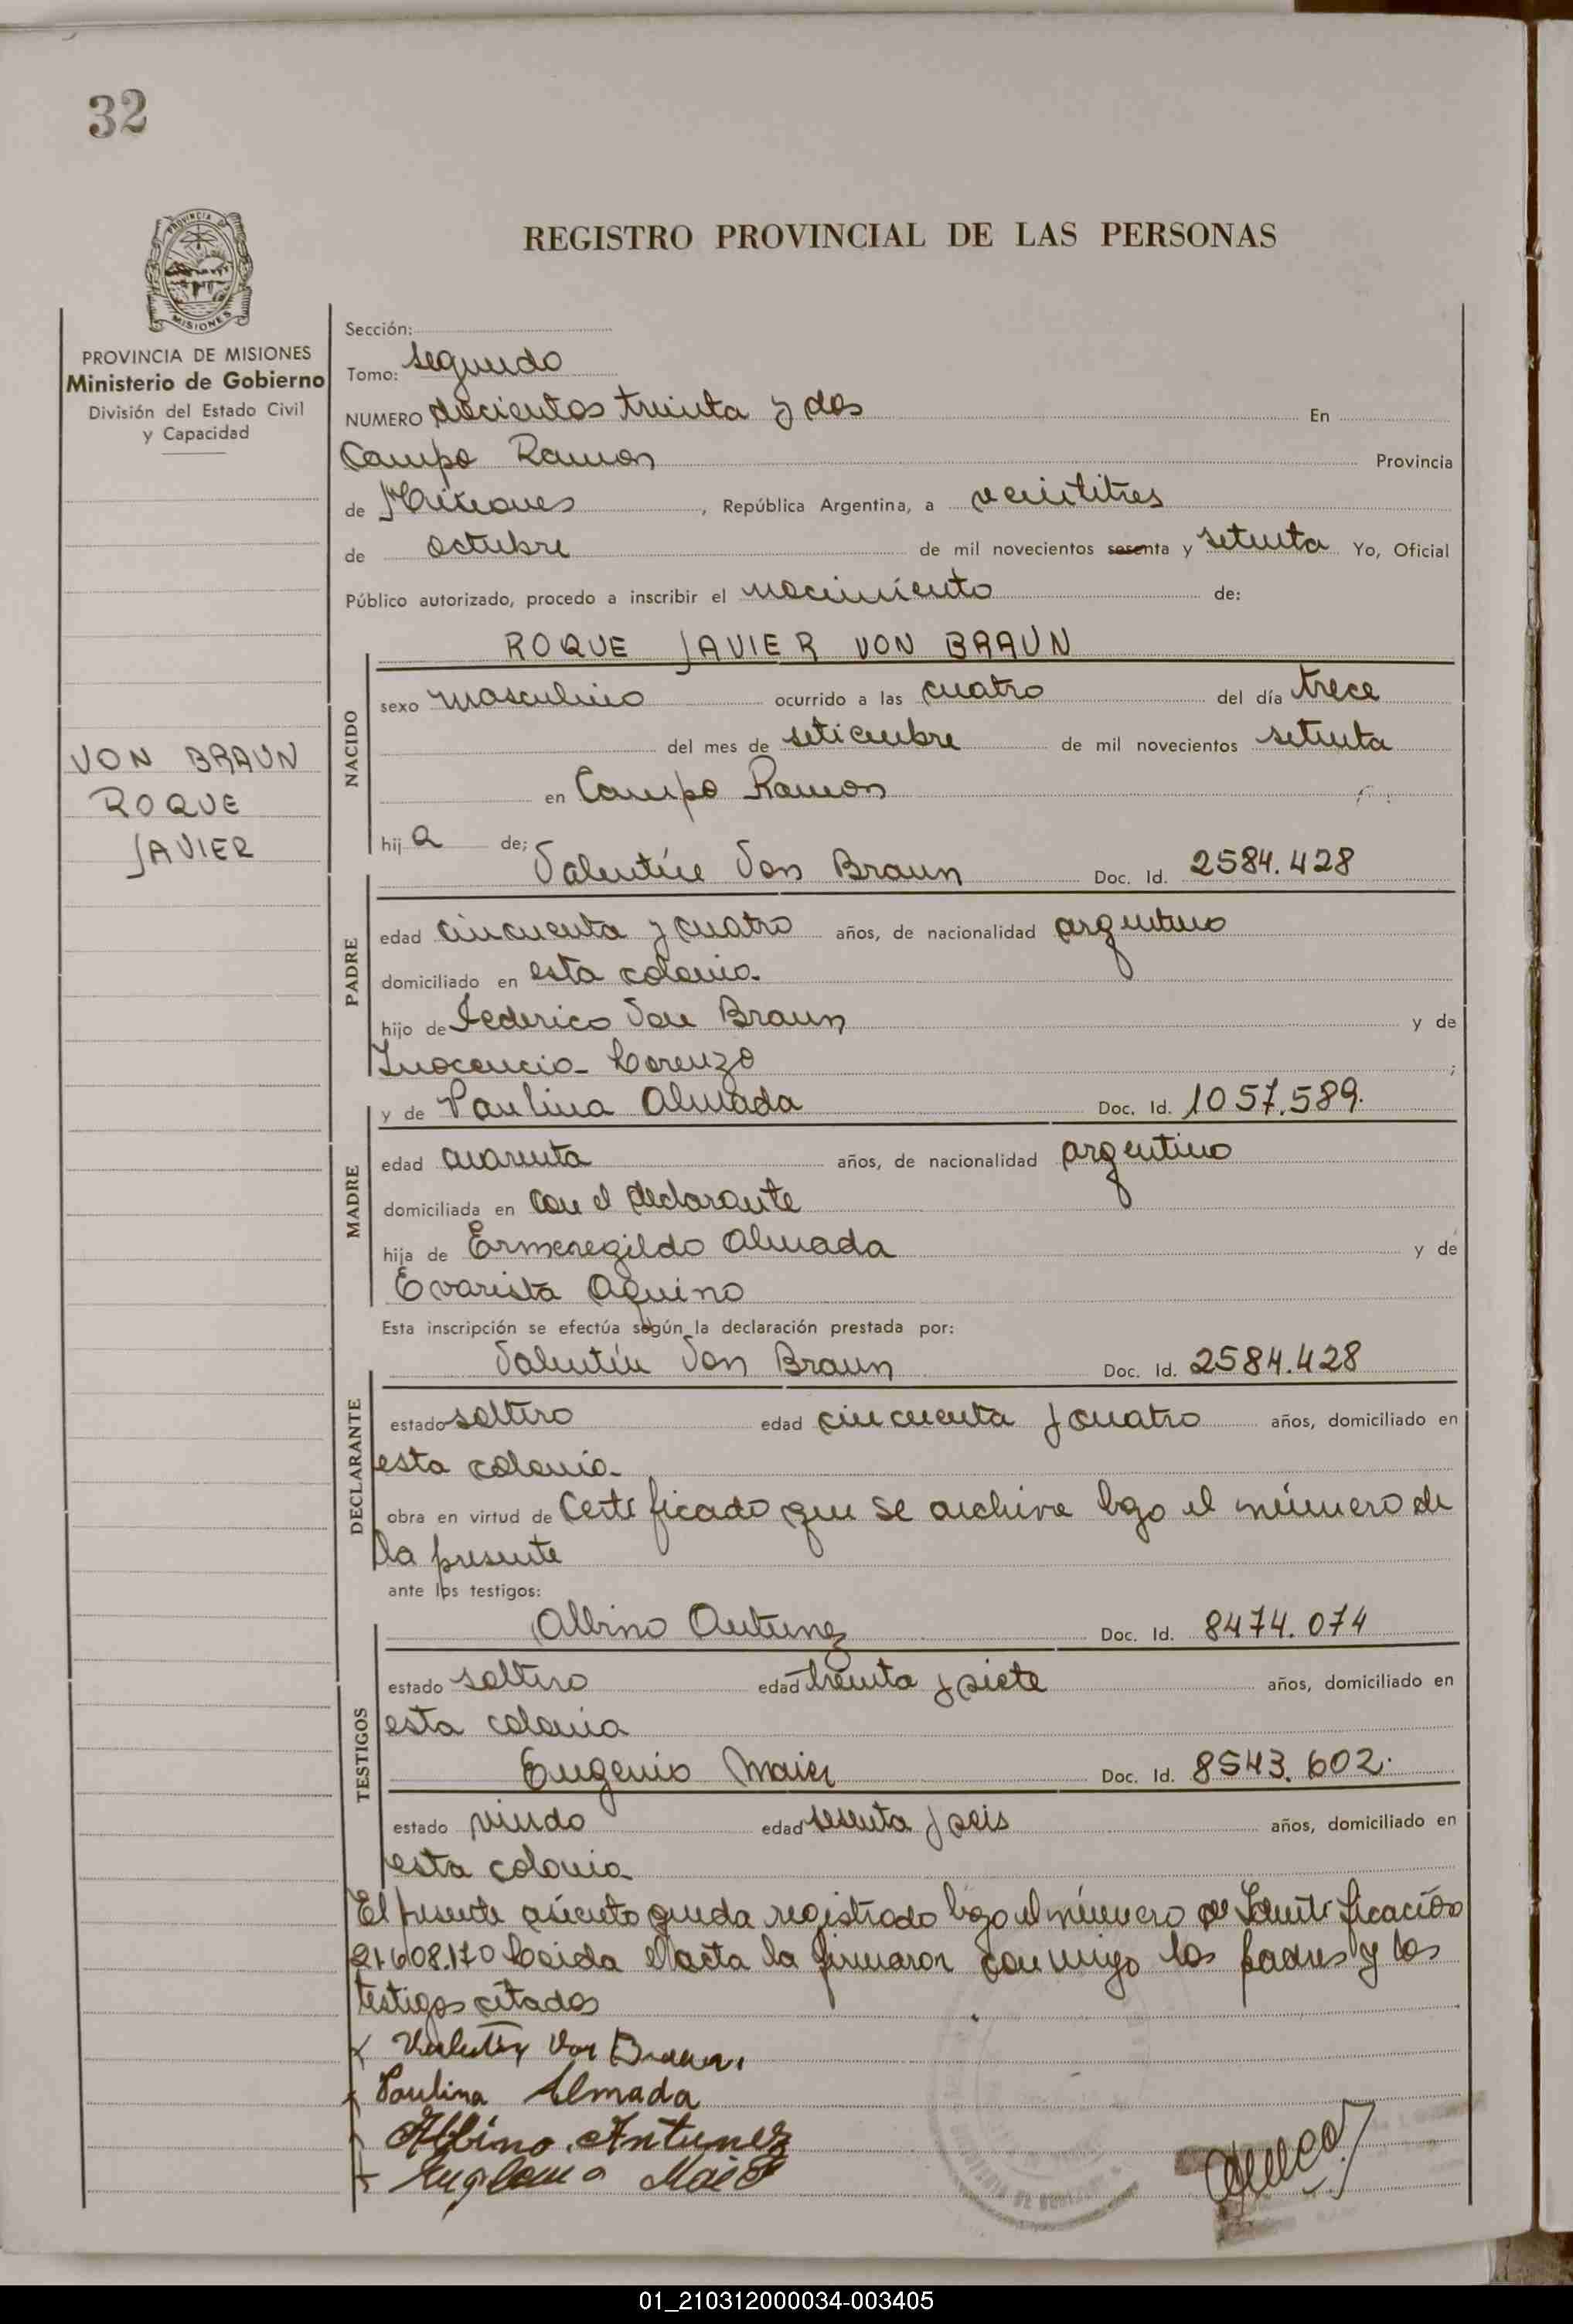 32
PROVINCIA DE MISIONES
PROVINCIA DE MISIONES
Ministerio de Gobierno
División del Estado Civil
y Capacidad
VON BRAUN
ROQUE
JAVIER
REGISTRO PROVINCIAL DE LAS PERSONAS
Sección:
Tomo: segundo
NUMERO docientos treinta y dos En
Campo Ramon Provincia
de Misiones, República Argentina, a veintitres
de octubre de mil novecientos sesenta y setenta Yo, Oficial
Público autorizado, procedo a inscribir el nacimiento de:
ROQUE JAVIER VON BRAUN
NACIDO
sexo masculino ocurrido a las cuatro del día trece
del mes de setiembre de mil novecientos setenta
en Campo Ramon
hij o de; Valentín Von Braun Doc. Id. 2584.428
PADRE
edad cincuenta y cuatro años, de nacionalidad argentino
domiciliado en esta colonia
hijo de Federico Von Braun y de
Inocencia Lorenzo ;
y de Paulina Almada Doc. Id. 1057.589.
MADRE
edad cuarenta años, de nacionalidad argentino
domiciliada en con el declarante
hija de Ermenegildo Almada y de
Evarista Aquino
Esta inscripción se efectúa según la declaración prestada por:
Valentín Von Braun Doc. Id. 2584.428
DECLARANTE
estado soltero edad cincuenta y cuatro años, domiciliado en
esta colonia
obra en virtud de Certificado que se archiva bajo el número de
la presente
ante los testigos:
Albino Antunez Doc. Id. 8474.074
TESTIGOS
estado soltero edad treinta y siete años, domiciliado en
esta colonia
Eugenio Maier Doc. Id. 8543.602.
estado viudo edad sesenta y seis años, domiciliado en
esta colonia
El presente asiento queda registrado bajo el número de Identificación
21608.170 Leida el acta la firmaron conmigo los padres y los
testigos citados
Valentin Von Braun
Paulina Almada
Albino Antunez
01_210312000034-003405